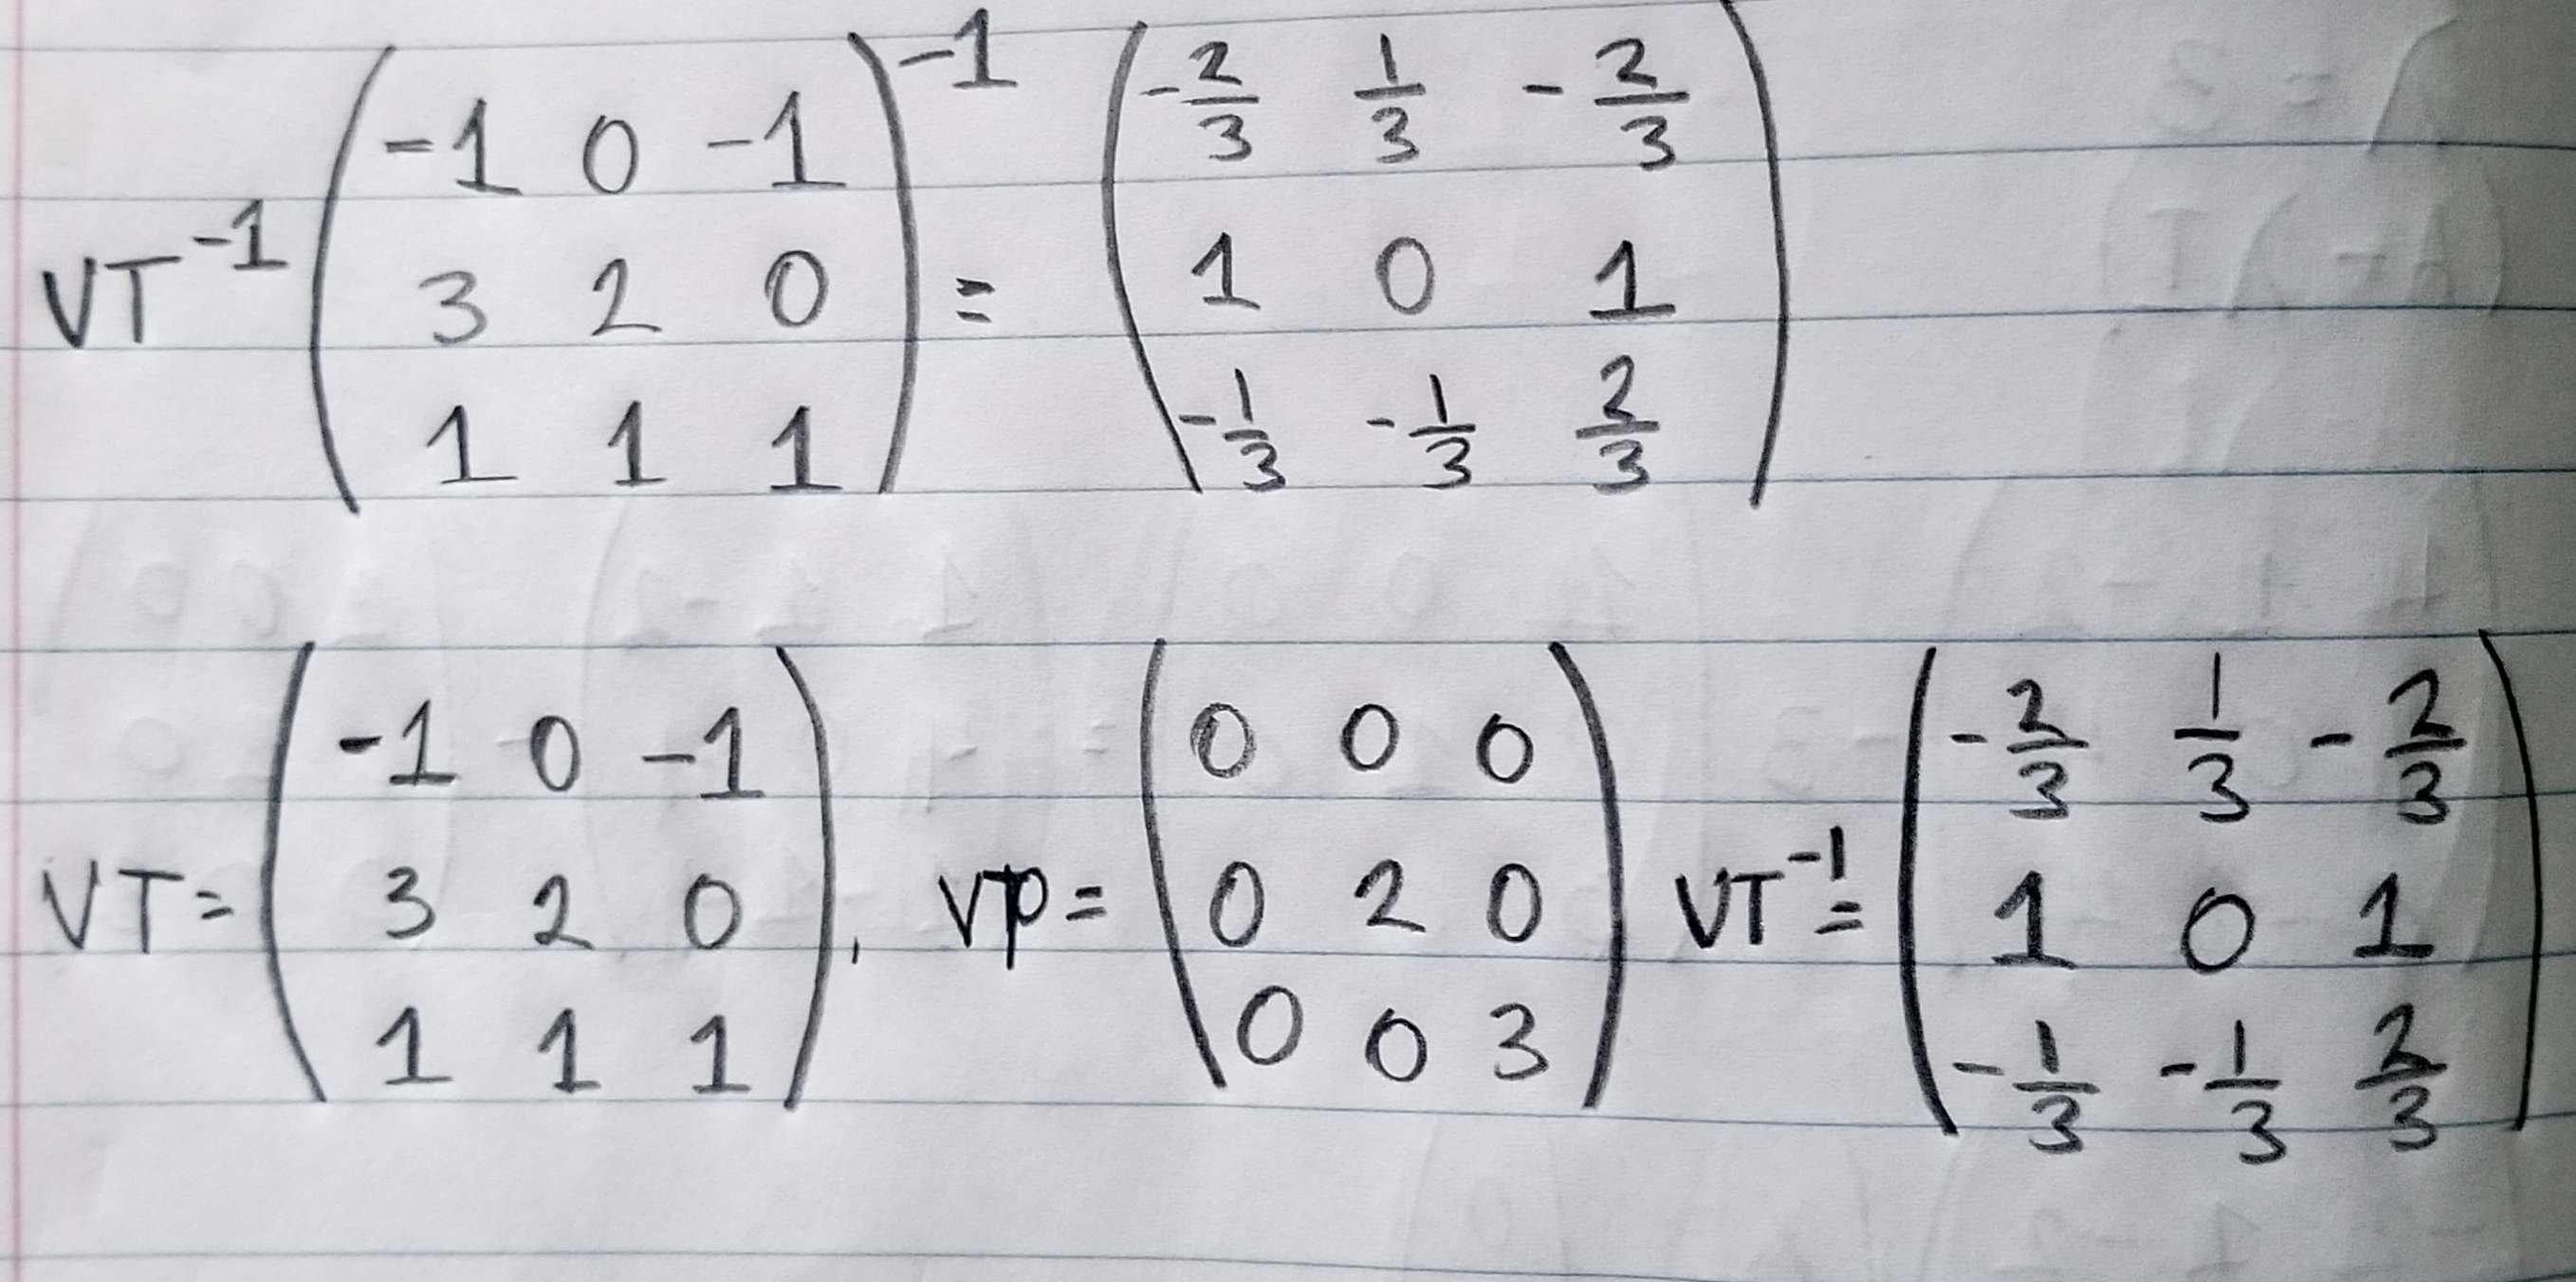 VT⁻¹ (-1 0 -1; 3 2 0; 1 1 1)⁻¹ = (-2/3 1/3 -2/3; 1 0 1; -1/3 -1/3 2/3)
VT = (-1 0 -1; 3 2 0; 1 1 1), VP = (0 0 0; 0 2 0; 0 0 3) VT⁻¹ = (-2/3 1/3 -2/3; 1 0 1; -1/3 -1/3 2/3)